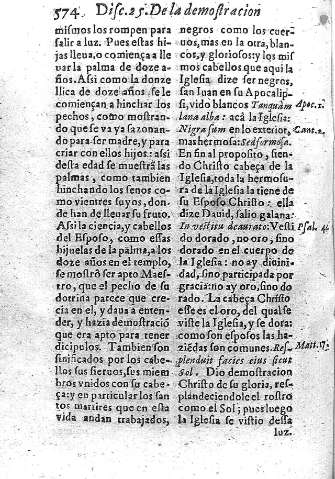 574. Disc. 25. De la demostracion
mismos los rompen para
salir a luz. Pues estas hi
jas lleua, o comiença a lle
uar la palma de doze a-
ños. Assi como la donze
llica de doze años se le
comiençan a hinchar los
pechos, como mostran-
do que se va ya sazonan-
do para ser madre, y para
criar con ellos hijos: assi
desta edad se muestrã las
palmas, como tambien
hinchando los senos co-
mo vientres suyos, don-
de han de lleuar su fruto.
Assi la ciencia, y cabellos
del Esposo, como essas
hijuelas de la palma, a los
doze años en el templo,
se mostrò ser apto Maes-
tro, que el pecho de su
dotrina parece que cre-
cia en el, y daua a enten-
der, y hazia demostraciõ
que era apto para tener
dicipulos. Tambien son
sinificados por los cabe-
llos sus sieruos, fieles miem
bros vnidos con su cabe-
ça: y en particular los san
tos martires que en esta
vida andan trabajados,
negros como los cuer-
uos, mas en la otra, blan-
cos, y gloriosos: y los mis
mos cabellos que aqui la
Iglesia dize ser negros,
san Iuan en su Apocalip-
si, vido blancos Tanquàm
lana alba: acà la Iglesia:
Nigra sum en lo exterior,
mas hermosa: Sed formosa.
En fin al proposito, sien-
do Christo cabeça de la
Iglesia, toda la hermosu-
ra de la Iglesia la tiene de
su Esposo Christo: ella
dize Dauid, salio galana:
In vestitu deaurato: Vesti
do dorado, no oro, sino
dorado en el cuerpo de
la Iglesia: no ay diuini-
dad, sino participada por
gracia: no ay oro, sino do
rado. La cabeça Christo
esse es el oro, del qual se
viste la Iglesia, y se dora:
como son esposos las ha-
ziẽdas son comunes. Res-
plenduit facies eius sicut
Sol. Dio demostracion
Christo de su gloria, res-
plandeciendole el rostro
como el Sol; pues luego
la Iglesia se vistio dessa
luz.
Apoc. 1.
Cant. 1.
Psal. 44
Matt. 17.